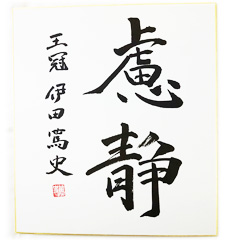 慮静
王冠 伊田篤史